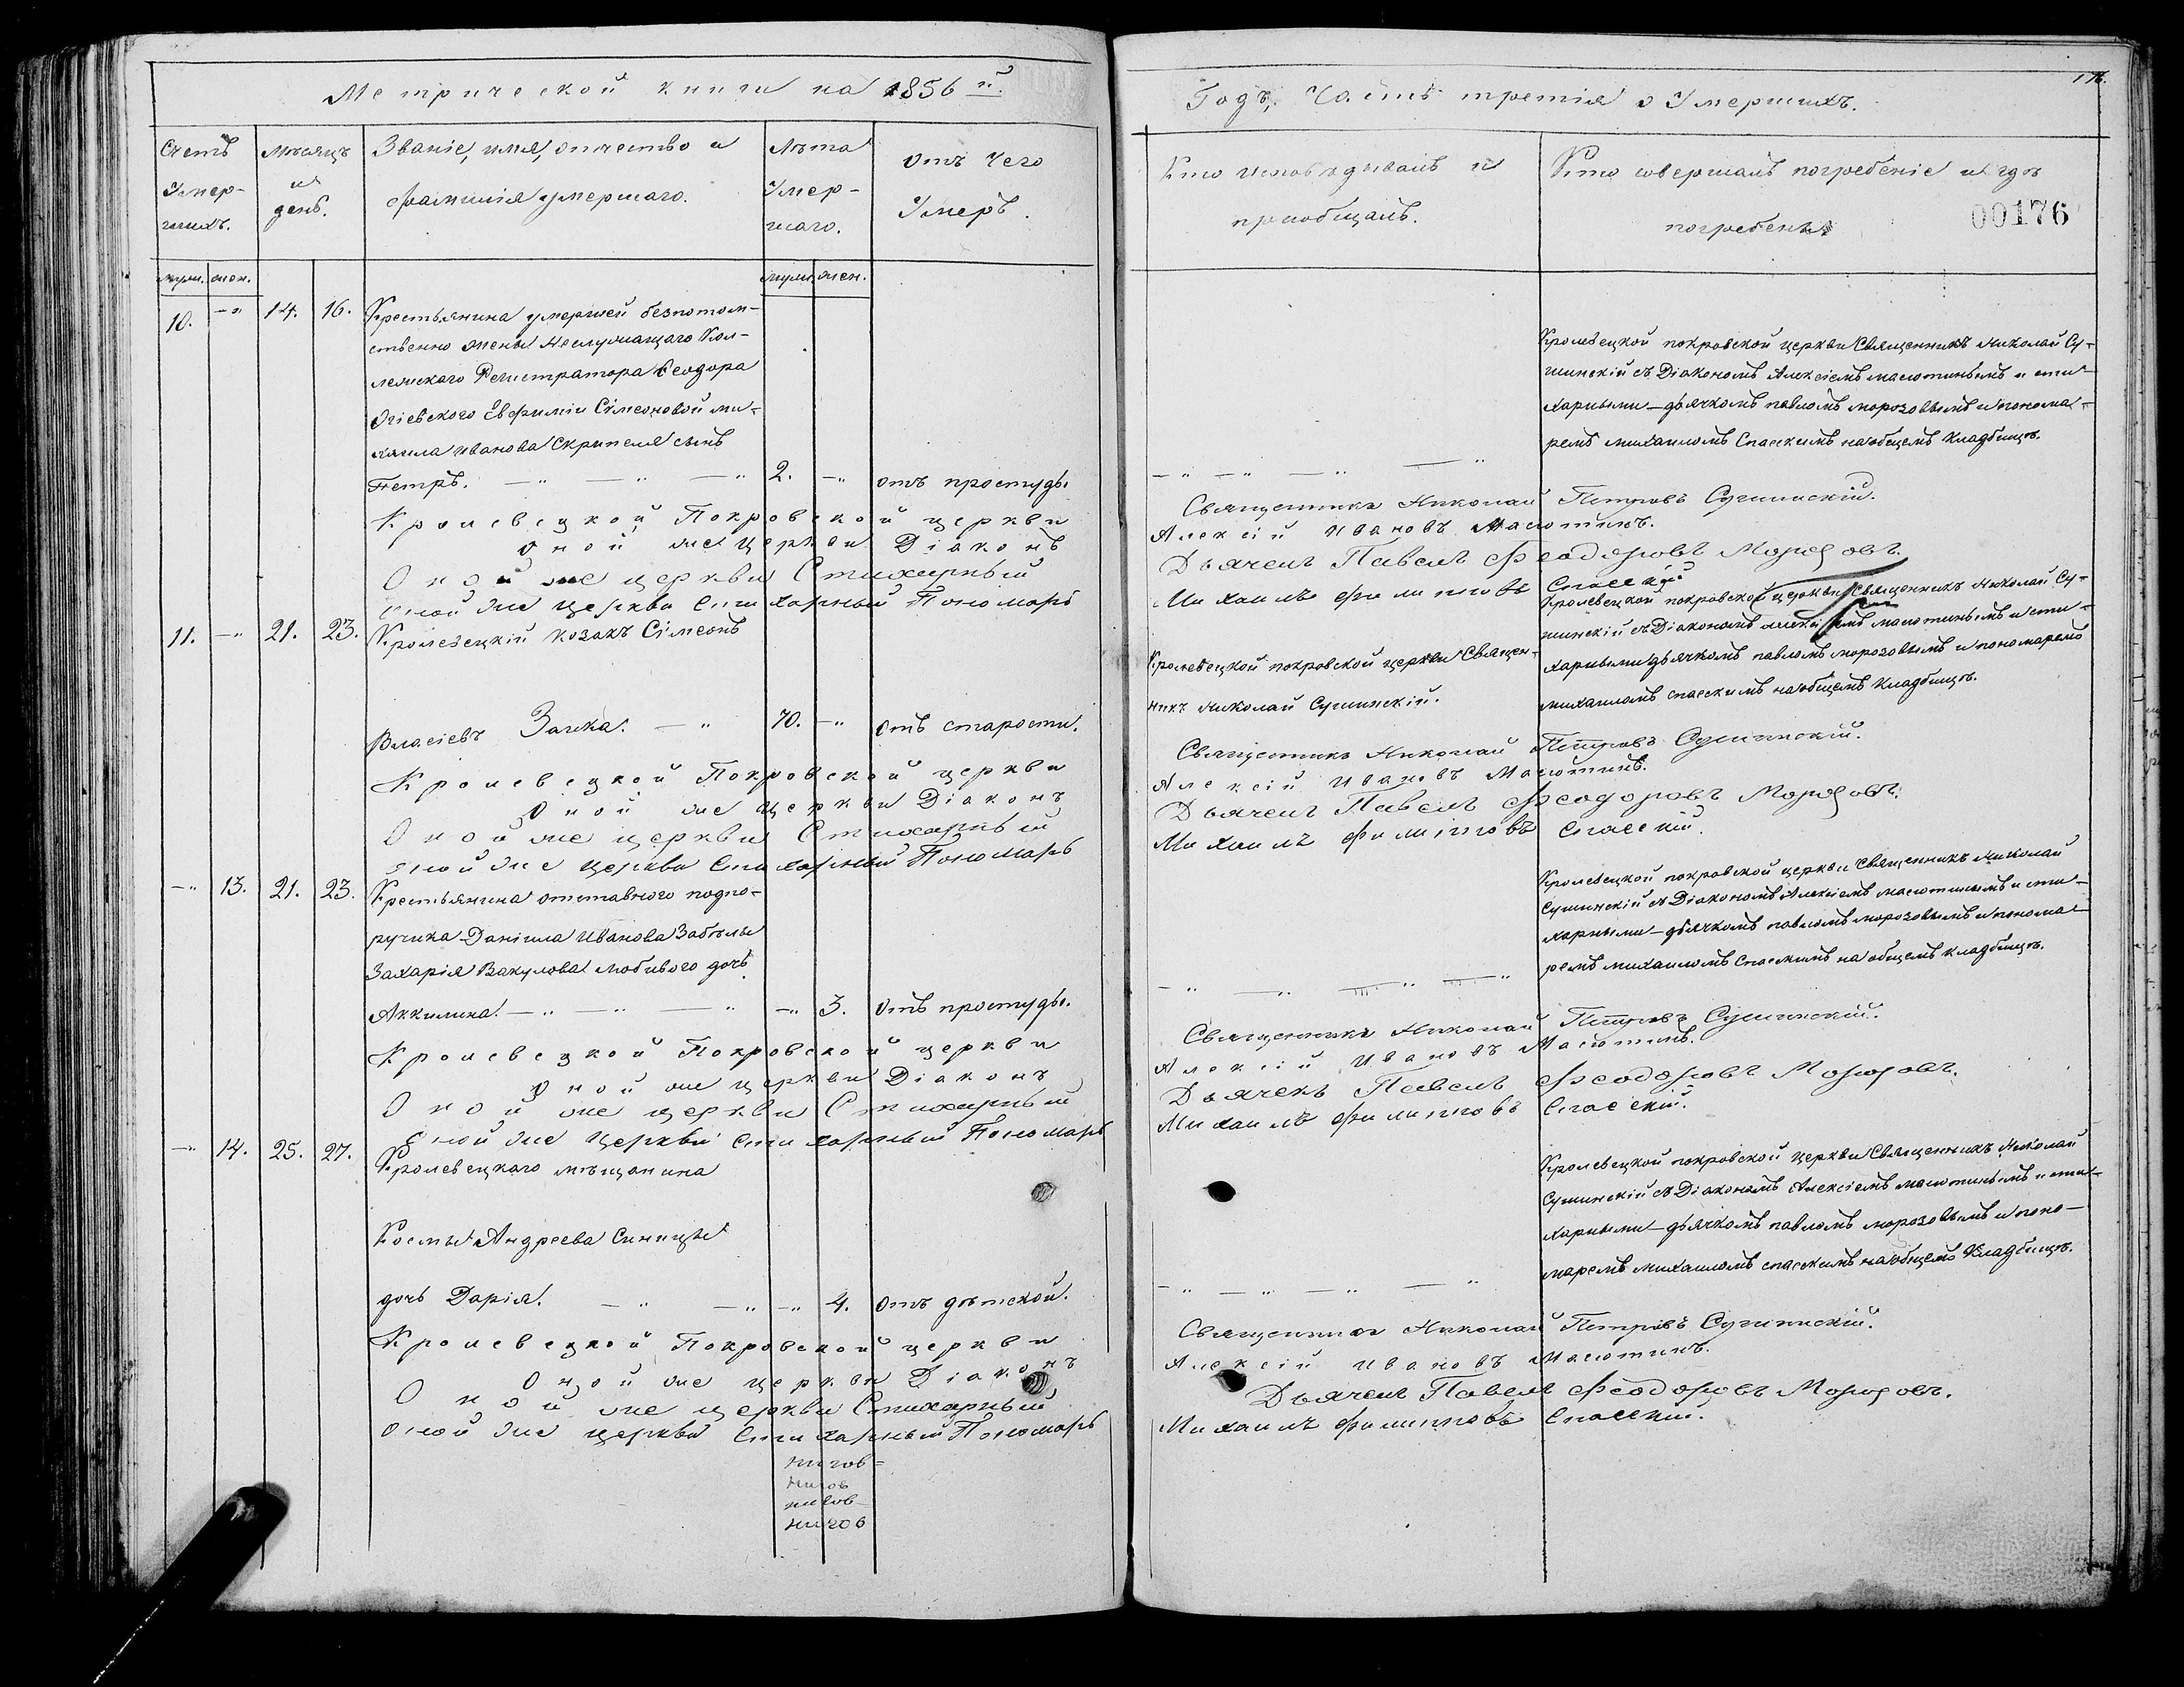 Метрической книги на 1856 й.
Счетъ
Умер-
шихъ.
Мѣсяцъ
и
день.
Званіе, имя, отчество и
фамилія умершаго.
Лѣта
Умер-
шаго.
Отъ чего
Умеръ.
муж. жен.
муж. жен.
10. -" 14. 16. Крестьянина умершей безпотом-
ственно жены Неслужащаго Кол-
лежскаго Регистратора Ѳеодора
Огіевского Евфиміи Сімеоновой Ми-
хаила Иванова Скрипеля сынъ
Петръ. —" —" —" 2. -" отъ простуды
Кролевецкой Покровской церкви
Оной же церкви Діаконъ
Оной же церкви Стихарный
Оной же церкви Стихарный Пономарь
11. -" 21. 23. Кролевецкій козакъ Сімеонъ
Власіевъ Заика. —" 70. -" отъ старости.
Кролевецкой Покровской церкви
Оной же церкви Діаконъ
Оной же церкви Стихарный
Оной же церкви Стихарный Пономарь
-" 13. 21. 23. Крестьянина отставного подпо-
ручика Даніила Иванова Забѣлы
Захарія Вакулова Любивого дочь
Аккилина. —" —" —" -" 3. отъ простуды.
Кролевецкой Покровской церкви
Оной же церкви Діаконъ
Оной же церкви Стихарный
Оной же церкви Стихарный Пономарь
-" 14. 25. 27. Кролевецкаго мѣщанина
Косты Андреева Синицы
дочь Дарія. —" —" -" 4. отъ дѣтской.
Кролевецкой Покровской церкви
Оной же церкви Діаконъ
Оной же церкви Стихарный
Оной же церкви Стихарный Пономарь
176.
Годъ, Часть третія о Умершихъ.
Кто исповѣдывалъ и
пріобщалъ.
Кто совершалъ погребеніе и гдѣ
погребены
00176
Кролевецкой покровской церкви Священникъ Николай Су-
шинскій съ Діакономъ Алексіемъ Малютинымъ и сти-
харными—дьячкомъ павломъ морозовымъ и понома-
ремъ михаиломъ Спасскимъ на общемъ кладбищѣ.
—" —" —" —"
Священникъ Николай Петровъ Сушинскій.
Алексій Ивановъ Малютинъ.
Дьячекъ Павелъ Феодоровъ Морозовъ.
Михаилъ Филиповъ Спасскій
Кролевецкой покровской церкви Священникъ Николай Су-
шинскій съ Діакономъ Алексіемъ малютинымъ и сти-
харными дьячкомъ павломъ морозовымъ и пономаремъ
михаиломъ спасскимъ на общемъ кладбищѣ.
Кролевецкой покровской церкви Священ-
никъ Николай Сушинскій.
Священникъ Николай Петровъ Сушинскій.
Алексій Ивановъ Малютинъ.
Дьячекъ Павелъ Феодоровъ Морозовъ.
Михаилъ Филиповъ Спасскій.
Кролевецкой покровской церкви Священникъ Николай
Сушинскій съ Діакономъ Алексіемъ малютинымъ и сти-
харными—дьячкомъ павломъ морозовымъ и понома-
ремъ михаиломъ Спасскимъ на общемъ кладбищѣ.
—" —" —" —"
Священникъ Николай Петровъ Сушинскій.
Алексій Ивановъ Малютинъ.
Дьячекъ Павелъ Феодоровъ Морозовъ.
Михаилъ Филиповъ Спасскій.
Кролевецкой покровской церкви Священникъ Николай
Сушинскій съ Діакономъ Алексіемъ малютинымъ и сти-
харными—дьячкомъ павломъ морозовымъ и поно-
маремъ михаиломъ спасскимъ на общемъ Кладбищѣ.
—" —" —" —"
Священникъ Николай Петровъ Сушинскій.
Алексій Ивановъ Малютинъ.
Дьячекъ Павелъ Феодоровъ Морозовъ.
Михаилъ Филиповъ Спасскій.